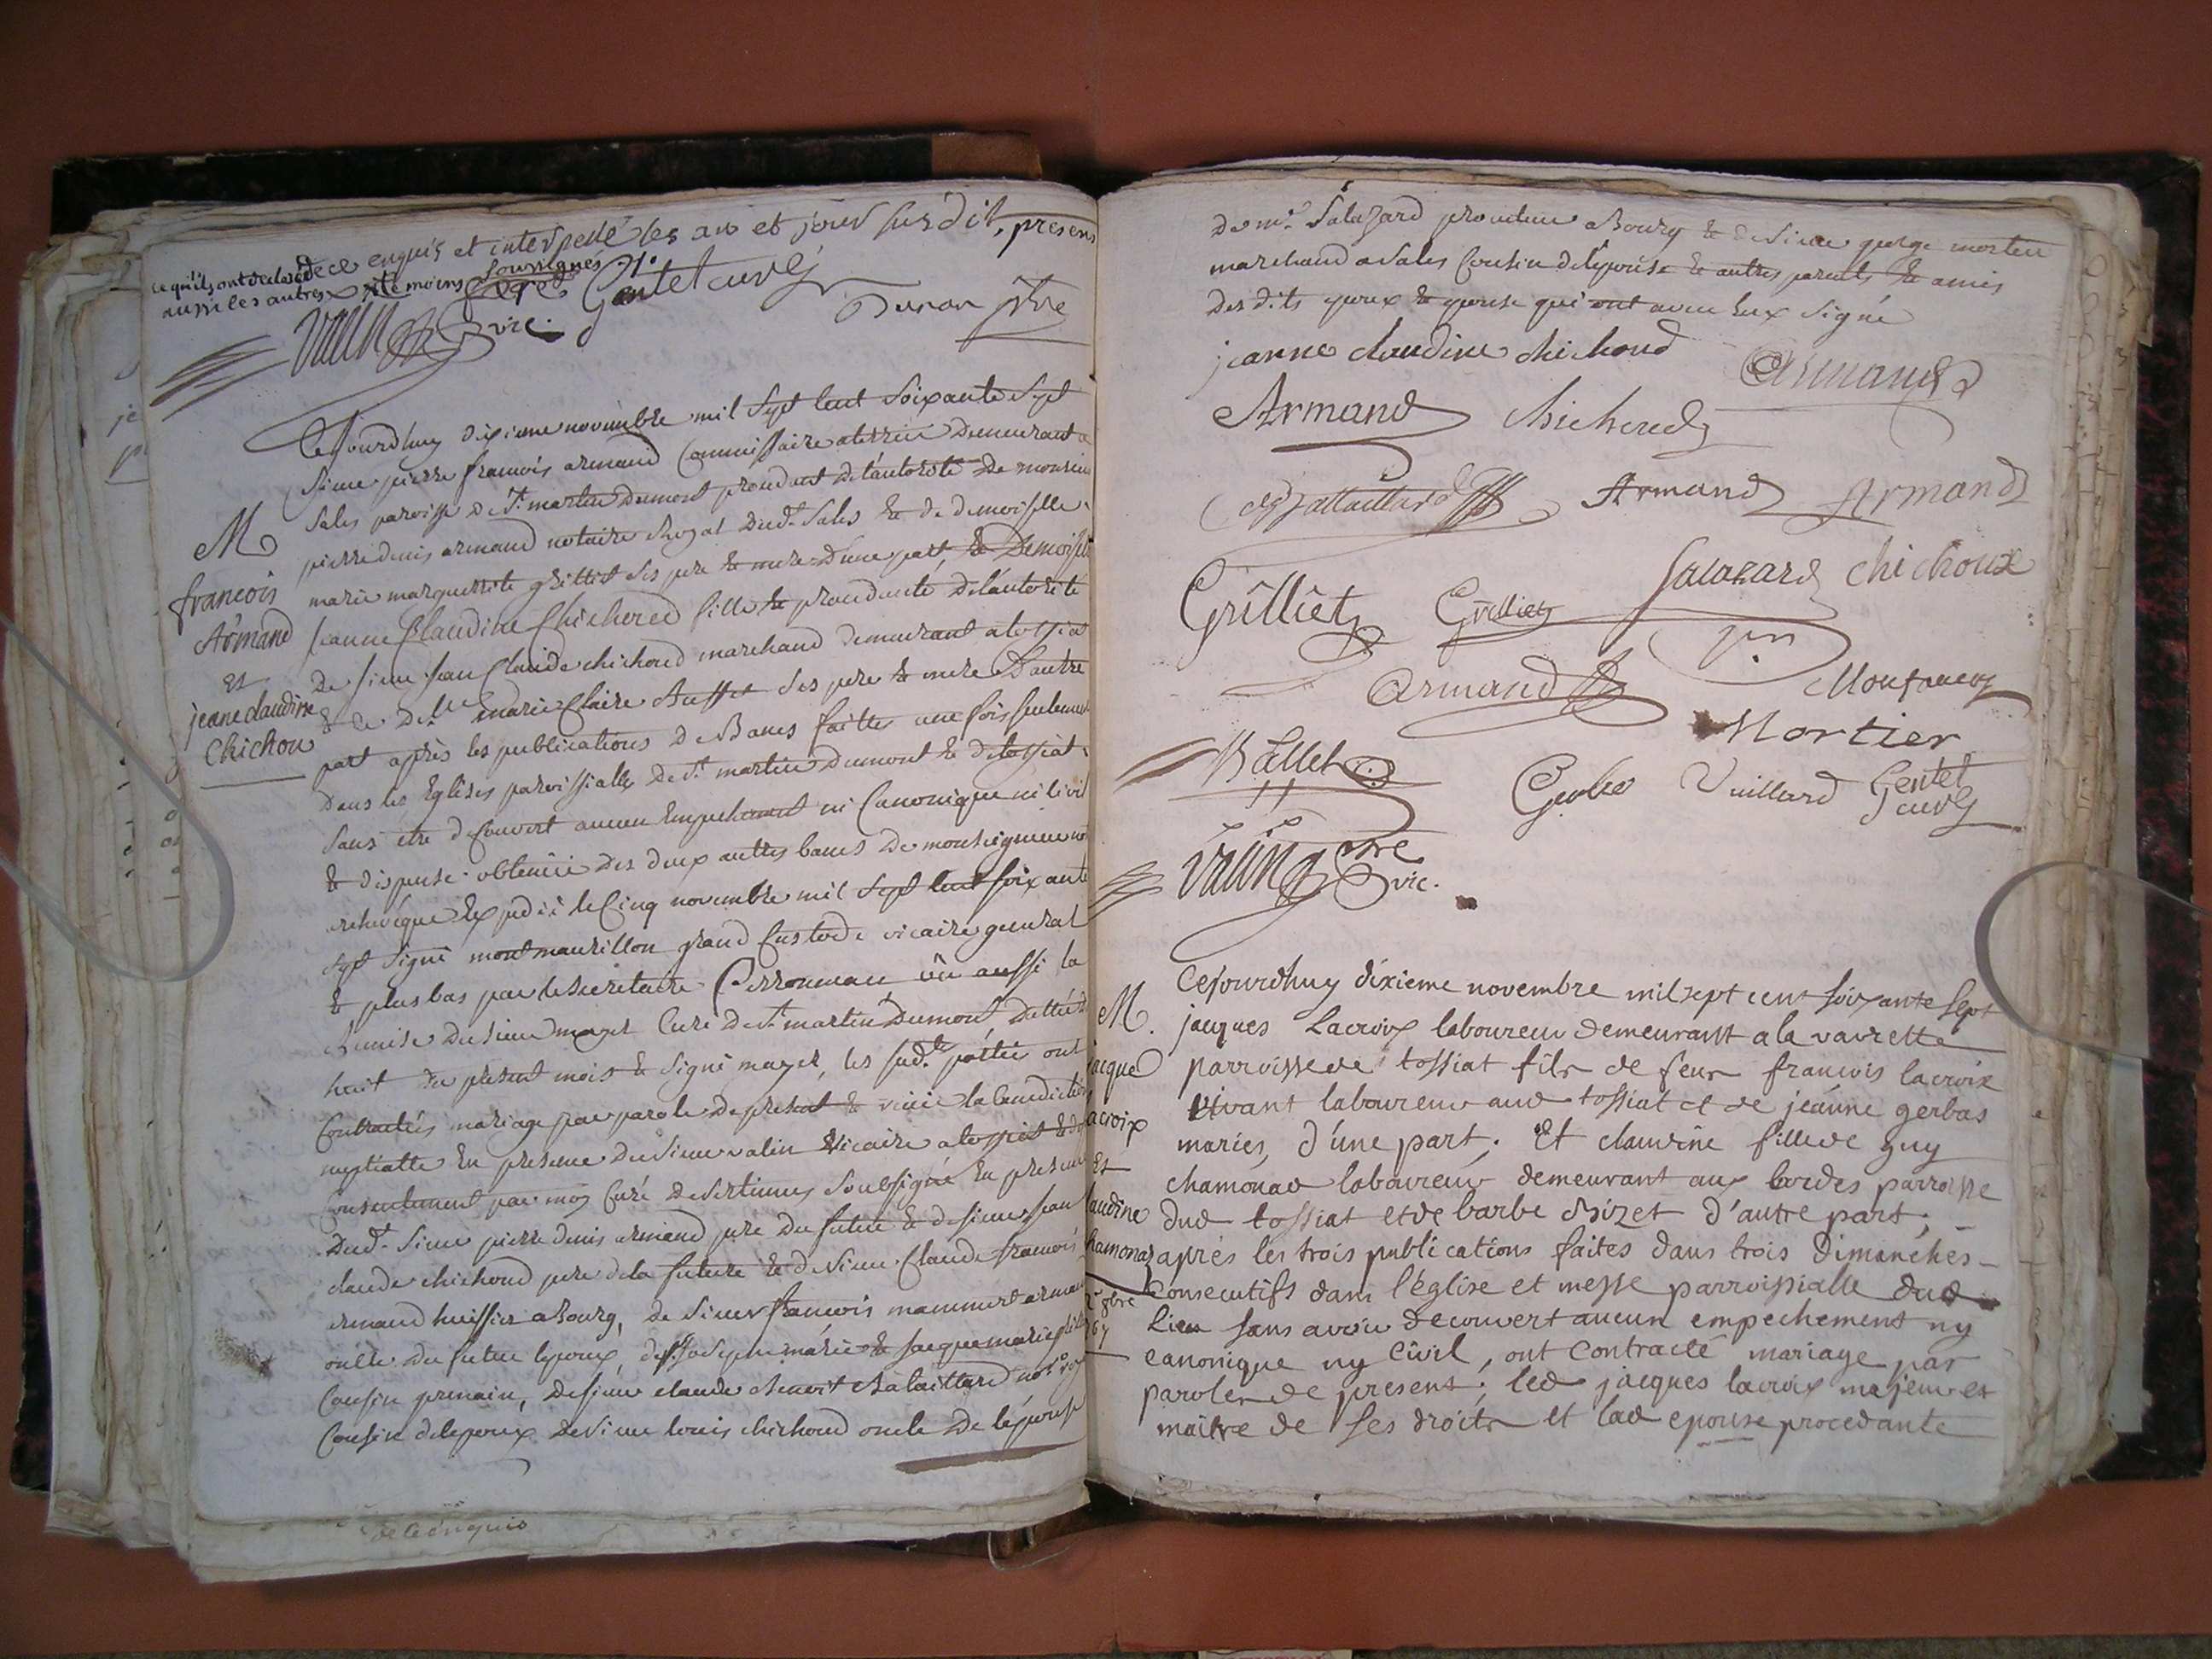 de ce enquis et interpellé les an et jour susdit, presens
ce qu'ils ont declaré
aussi les autres temoins soussignes
Gentet curé
Duran ptre
vic.
Cejourdhuy dixieme novembre mil sept cent soixante sept
sieur pierre francois armand Commissaire a terrier demeurant a
Sales paroisse de St. martin dumont procedant de l'autorité de monsieur
pierre denis armand notaire Royal dud. Sales & de demoiselle
marie marguerite grilliet ses pere & mere d'une part, & Demoiselle
M
francois
Armand
et
jeane claudine
Chichou
Jeanne Claudine Chichoud fille & procedante de l'autorité
de sieur jean Claude chichoud marchand demeurant a tossiat
& de Dlle marie Claire ses pere & mere d'autre
part après les publications de Bancs faittes une fois seulement
dans les Eglises paroissialles de St. martin dumont & de tossiat
sans etre decouvert aucun Empechement ni Canonique ni Civil
& dispense obtenüe des deux autres bancs de monseigneur
archevêque Expediée le Cinq novembre mil sept cent soixante
sept signé montmaurillon grand Custode vicaire general
& plus bas par le secretaire vû aussi la
Remise du sieur mayet Curé de St. martin dumont, dattée du
huit du présent mois & signé mayet, les sud. parties ont
Contractés mariage par parole de présent & reçue la benediction
nuptialle En presence du sieur valin vicaire a tossiat & de
Consentement par moy Curé de soussigné En presence
dud. sieur pierre denis armand pere du futur & de sieur jean
claude chichoud pere de la future & de sieur Claude francois
armand huissier a Bourg, de sieur francois mammert armand
oncle du futur epoux, de joseph marie & jacque marie grilliet
Cousin germain, de sieur claude benoit Bataillard not. roy.
Cousin de l'epoux de sieur louis chichoud oncle de l'épouse
de ce enquis
de mr. Salazard procureur a Bourg & de sieur george mortier
marchand a Sales Cousin de l'épouse & autres parents & amis
des dits epoux & epouse qui ont avec Eux signé
jeanne claudine chichoud
Armand
Armand chichoud
Bataillard Armand Armand
Grilliet Grilliet Salazard chichoux
Armand Monfaucon
Mortier
Ballet
Gerbe Vuillard Gentet
curé
ptre
vic.
Cejourdhuy dixieme novembre mil sept cent soixante sept
M.
jacque
lacroix
Et
laudine
hamonaz
jacques Lacroix laboureur demeurant a la vavrette
parroisse de tossiat fils de feur francois lacroix
vivant laboureur aud tossiat et de jeanne gerbas
mariés, d'une part; Et claudine fille de guy
chamonad laboureur demeurant aux bordes parroisse
dud tossiat et de barbe d'autre part;
après les trois publications faites dans trois dimanches
consecutifs dans l'église et messe parroissialle dud
Lieu sans avoir decouvert aucun empechement ny
canonique ny Civil, ont Contracté mariage par
paroles de present; led jacques lacroix majeur et
maitre de ses droits et lad epouse procedante